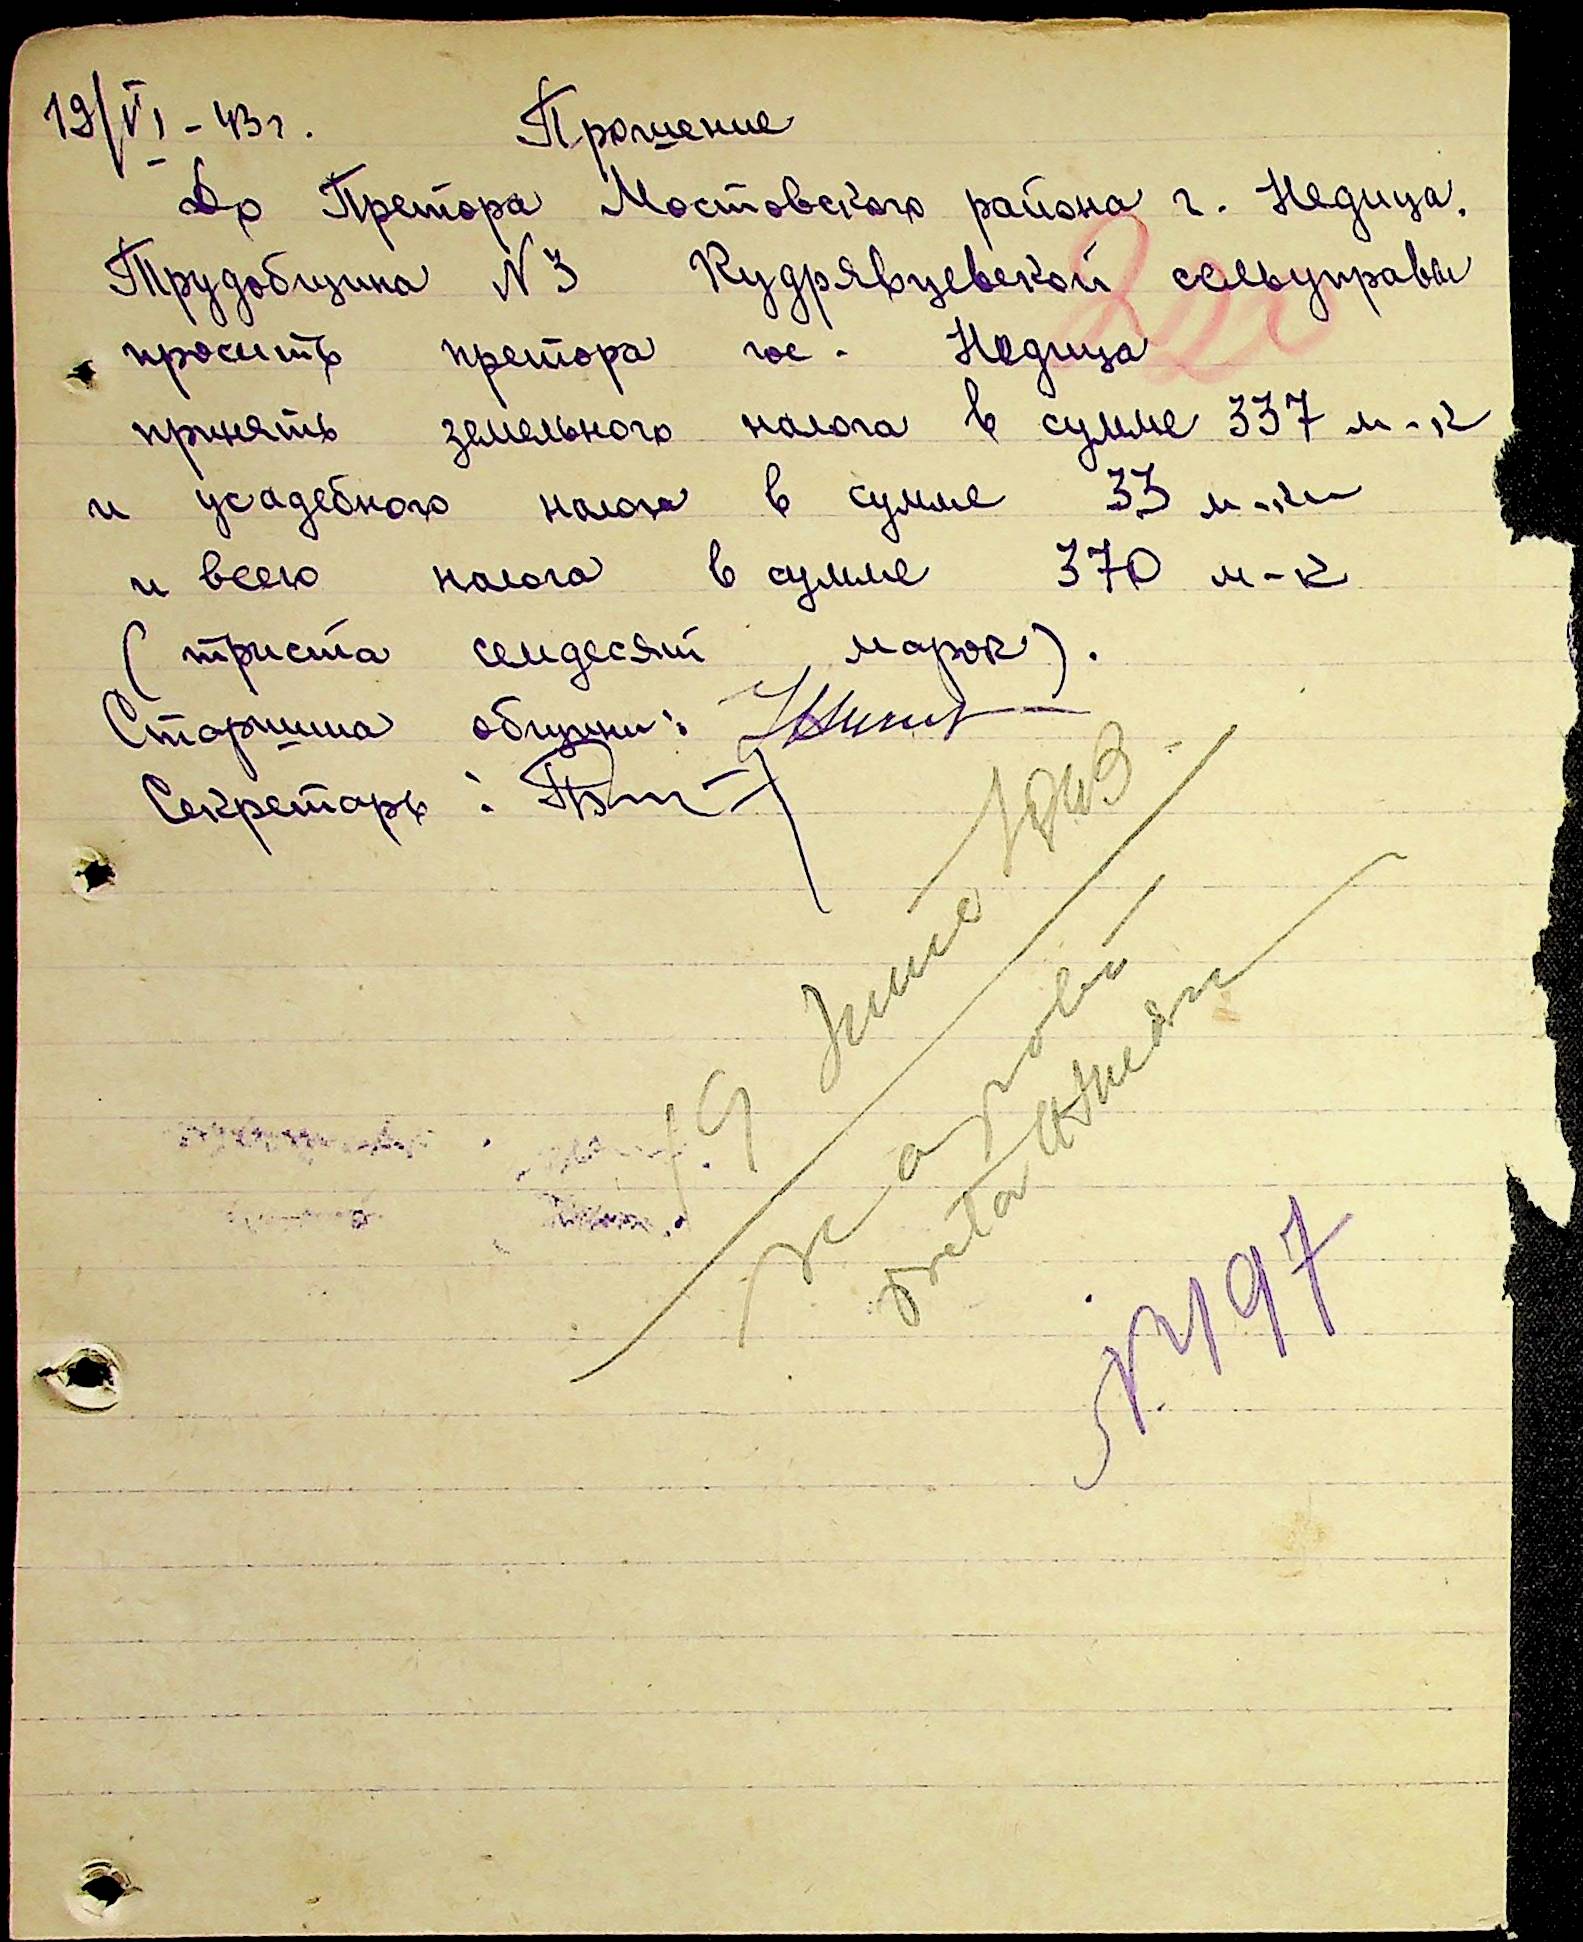 19/VI - 43 г. Прошение
До Претора Мостовского района г. Недица.
Трудобщина N 3 Кудрявцевской сельуправы
просить претора гос. Недица
принять земельного налога в сумме 337 м-к
и усадебного налога в сумме 33 м-к
и всего налога в сумме 370 м-к
(триста семдесят марок).
Старшина общины:
Секретарь:
19 Iunie 1943
№ 197